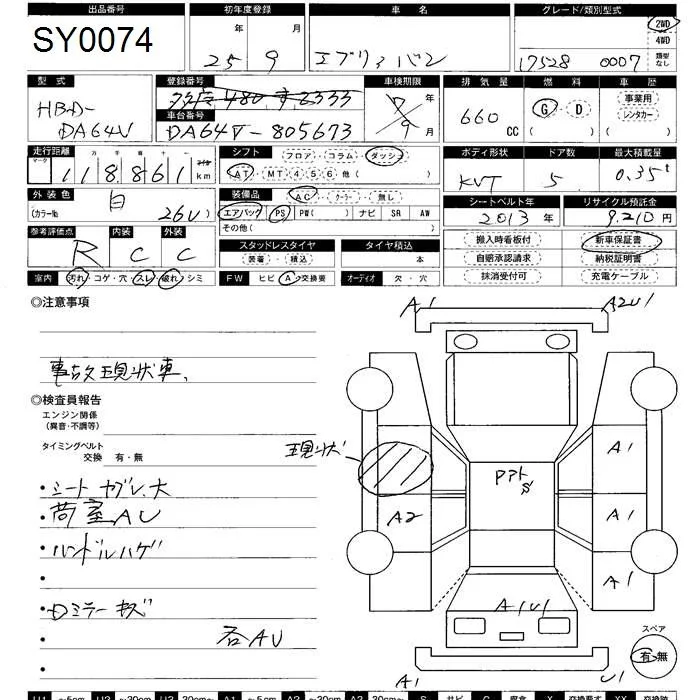 出品番号 初年度登録 車 名 グレード/類別型式
SY0074 25 年 9 月 エブリィバン 17528 0007 2WD 4WD 類型なし
型 式 登録番号 車検期限 排 気 量 燃 料 車 歴
HBD-DA64V 480 年 9 月 660 CC G・D ( ) 事業用 レンタカー ( )
車台番号
DA64V-805673
走行距離 シフト フロア・コラム・ダッシュ ボディ形状 ドア数 最大積載量
マーク 十 万 千 百 十 一
118861 km AT・MT 4 5 6 他( ) KVT 5 0.35t
外 装 色 装備品 AC・クーラー・無し シートベルト年 リサイクル預託金
白
(カラー№ 26U ) エアバッグ PS PW( ) ナビ SR AW 2013 年 9.210 円
その他( )
参考評価点 内装 外装 スタッドレスタイヤ タイヤ積込 搬入時看板付 新車保証書
R C C 装着・積込 本 自賠承認請求 納税証明書
室内 汚れ・コゲ・穴・スレ・破れ・シミ FW ヒビ・A・交換要 オーディオ 欠・穴 抹消受付可 充電ケーブル
◎注意事項
A1 A2U1
事故現状車、
◎検査員報告
エンジン関係
(異音・不調等)
タイミングベルト
交換 有・無
現状
A1
・シートヤブレ、大
・荷室AU
A2 A1
・ハンドルハゲ
A1
・
・ロミラーキズ
A1U1
各AU
スペア
有・無
A1 U1
U1 ~5cm U2 ~30cm U3 30cm~ A1 ~5cm A2 ~30cm A3 30cm~ S サビ C 腐食 X 交換要す XX 交換跡